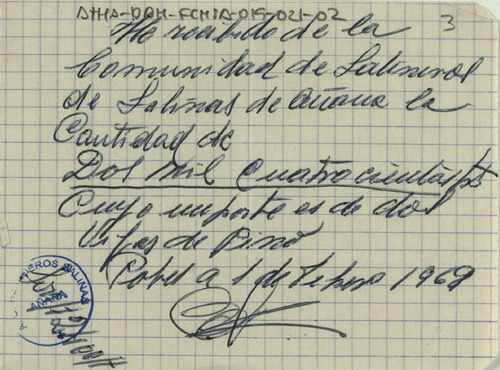 ATHA-DAH-FCMIA-015-021-02
3
He recibido de la
Comunidad de Salineros
de Salinas de Añana la
Cantidad de
Dos mil Cuatrocientas pts
Cuyo importe es de dos
Vigas de Pino
Pobes a 1 de Febrero 1968
SALINEROS SALINAS
AÑANA